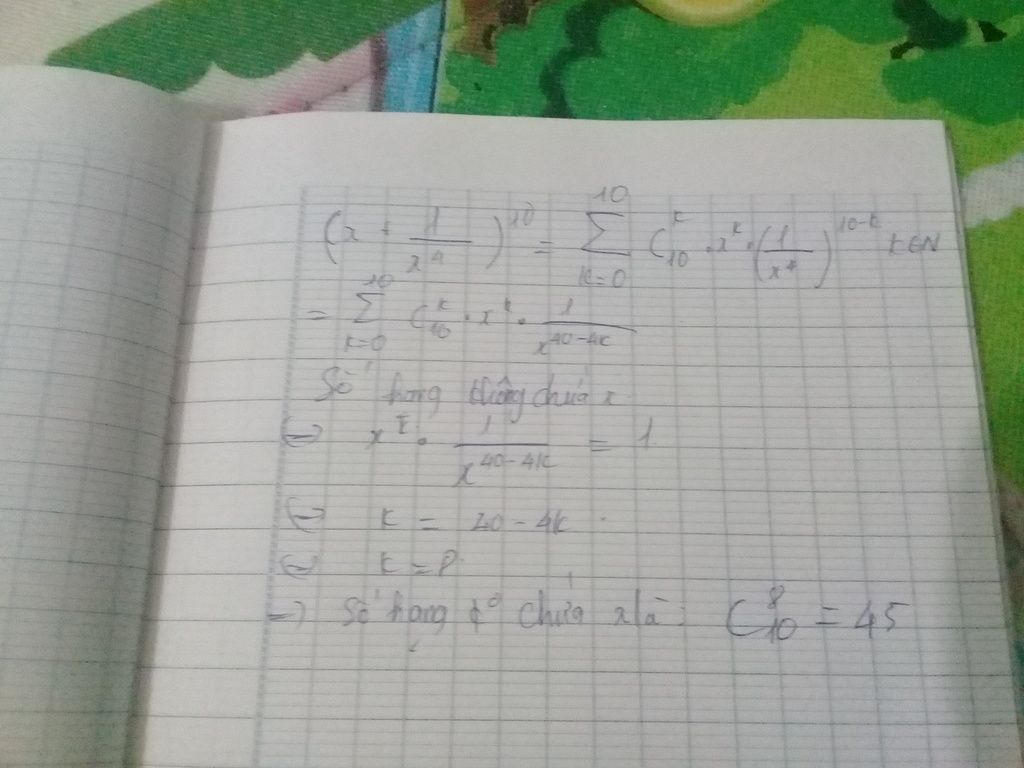 (x + 1/x⁴)¹⁰ = ∑_{k=0}^{10} C₁₀ᵏ . xᵏ . (1/x⁴)¹⁰⁻ᵏ k∈N
= ∑_{k=0}^{10} C₁₀ᵏ . xᵏ . 1/x⁴⁰⁻⁴ᵏ
Số hạng không chứa x
⇔ xᵏ . 1/x⁴⁰⁻⁴ᵏ = 1
⇔ k = 40 - 4k
⇔ k = 8
⇒ Số hạng k⁰ chứa x là: C₁₀⁸ = 45